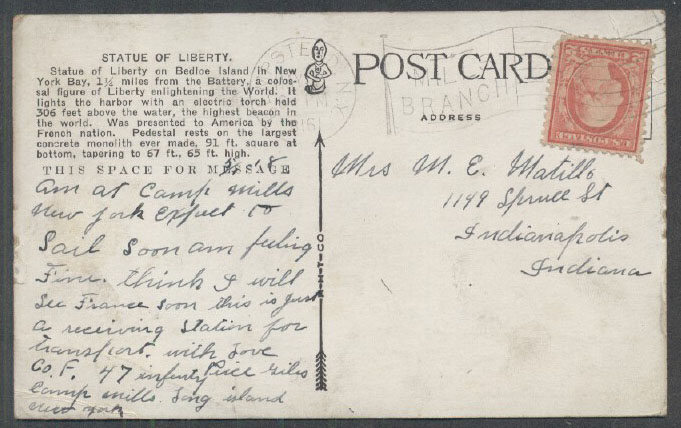 STATUE OF LIBERTY.
Statue of Liberty on Bedloe Island in New
York Bay, 1½ miles from the Battery, a colos-
sal figure of Liberty enlightening the World. It
lights the harbor with an electric torch held
306 feet above the water, the highest beacon in
the world. Was presented to America by the
French nation. Pedestal rests on the largest
concrete monolith ever made, 91 ft. square at
bottom, tapering to 67 ft., 65 ft. high.
THIS SPACE FOR MESSAGE
am at Camp Mills
New York Expect to
Sail Soon am feeling
Fine. think I will
See France soon this is just
a receiving Station for
transport. with Love
Co. F. 47 infantry
Camp Mills. Long island
New York
POST CARD
ADDRESS
BRANCH
Mrs M. E. Matillo
1149 Spruce St
Indianapolis
Indiana